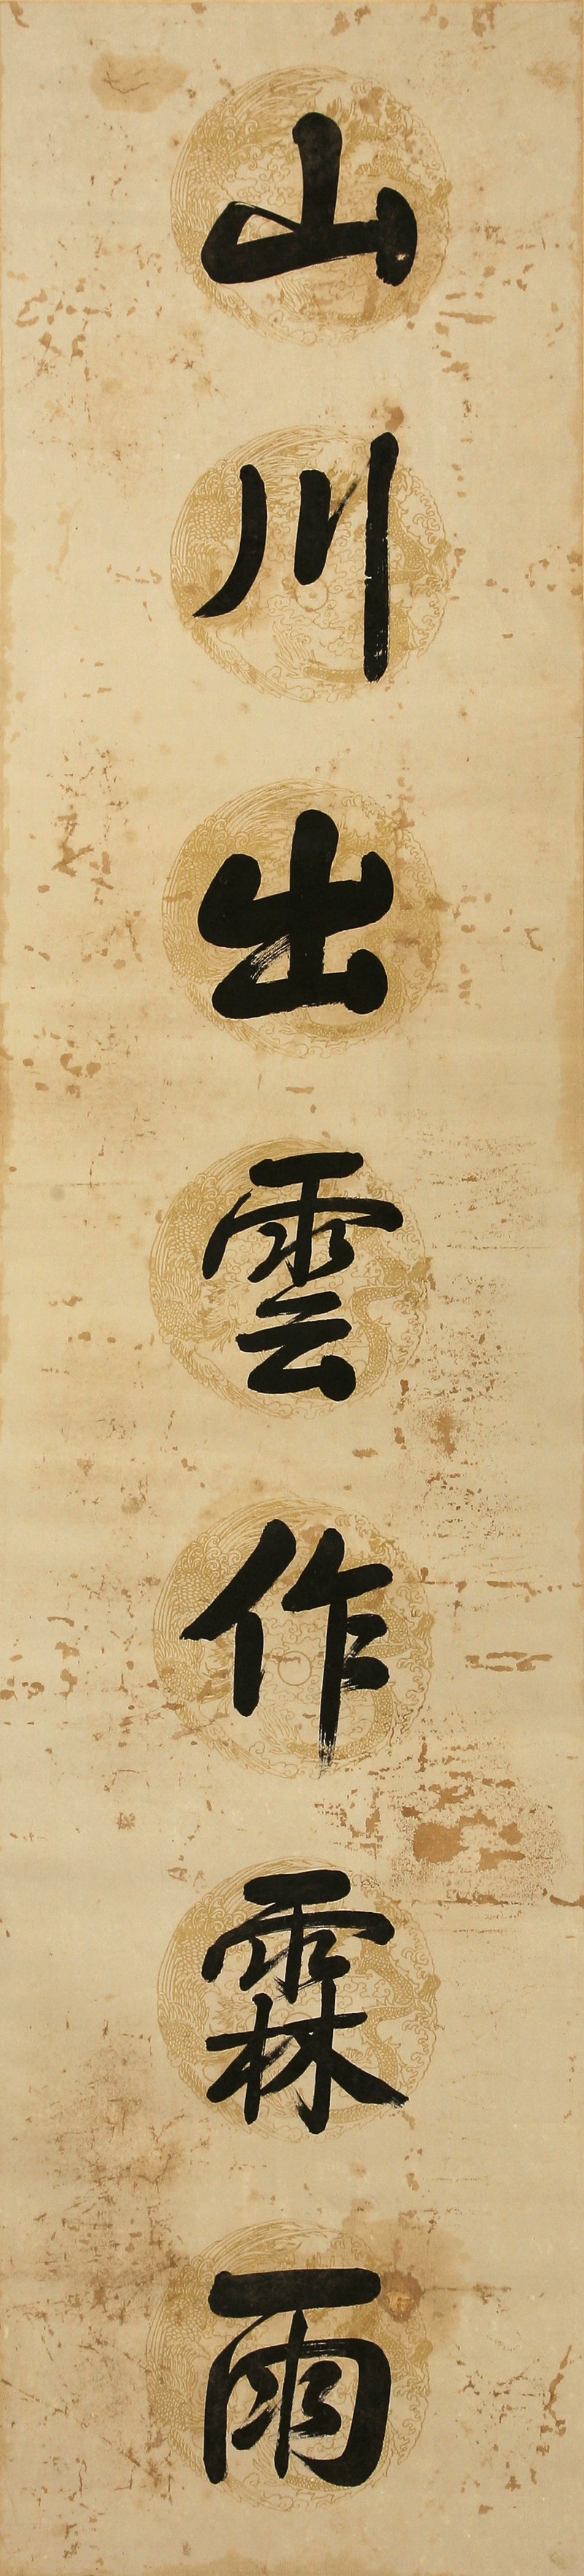 山川出雲作霖雨